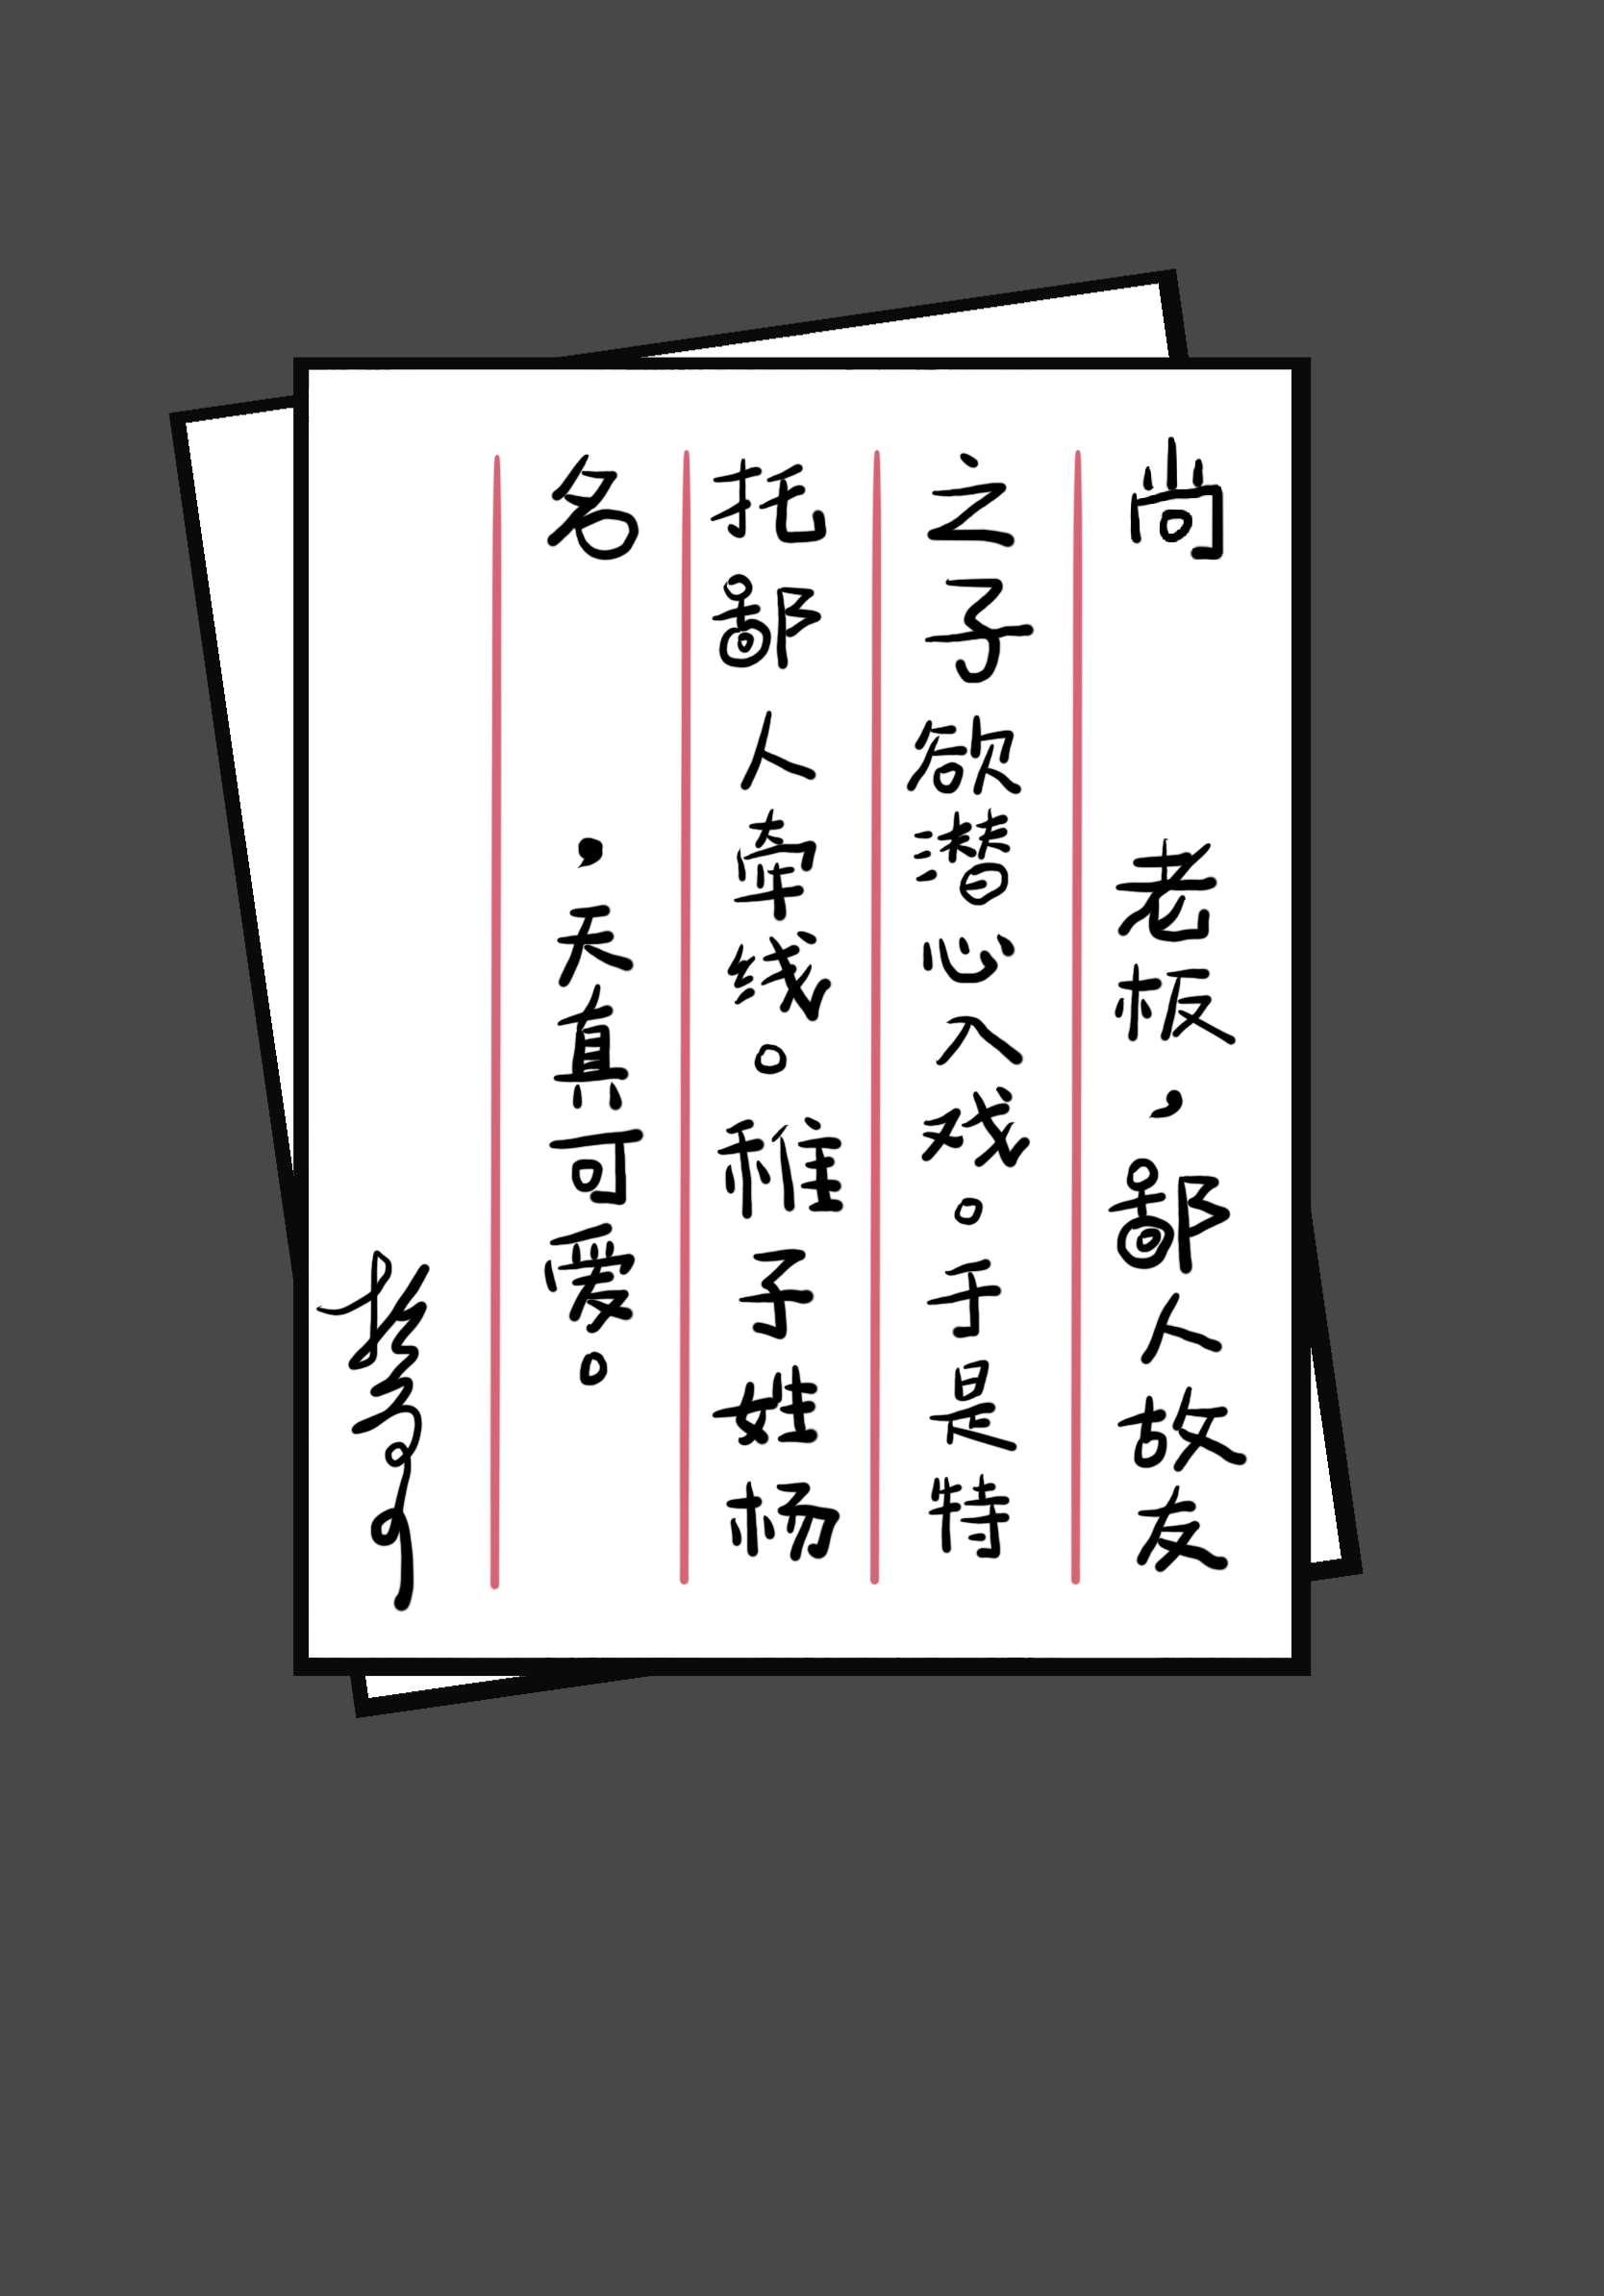 尚 老板,鄙人故友
之子欲潜心入戏。于是特
托鄙人牵线。稚子姓杨
名 ,天真可愛。